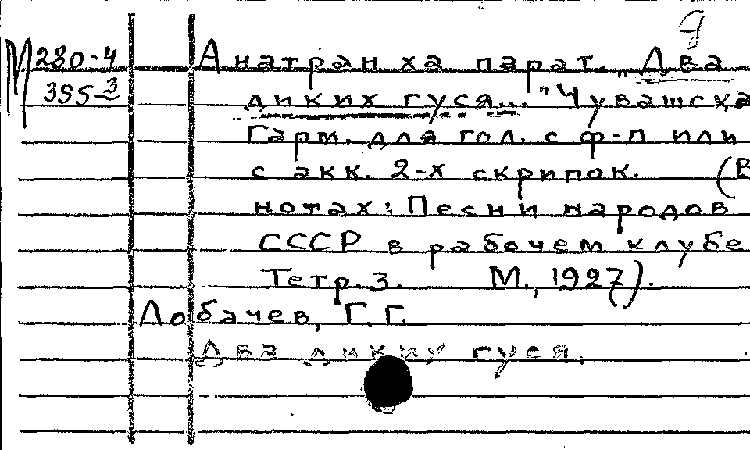 9
М 280-4 Анатран ха парат. „Два
395-3 диких гуся..." Чувашска
Гарм. для гол. с ф-п или
с акк. 2-х скрипок. (В
нотах: Песни народов
СССР в рабочем клубе
Тетр. 3. М., 1927).
Лобачев, Г. Г.
Два диких гуся.